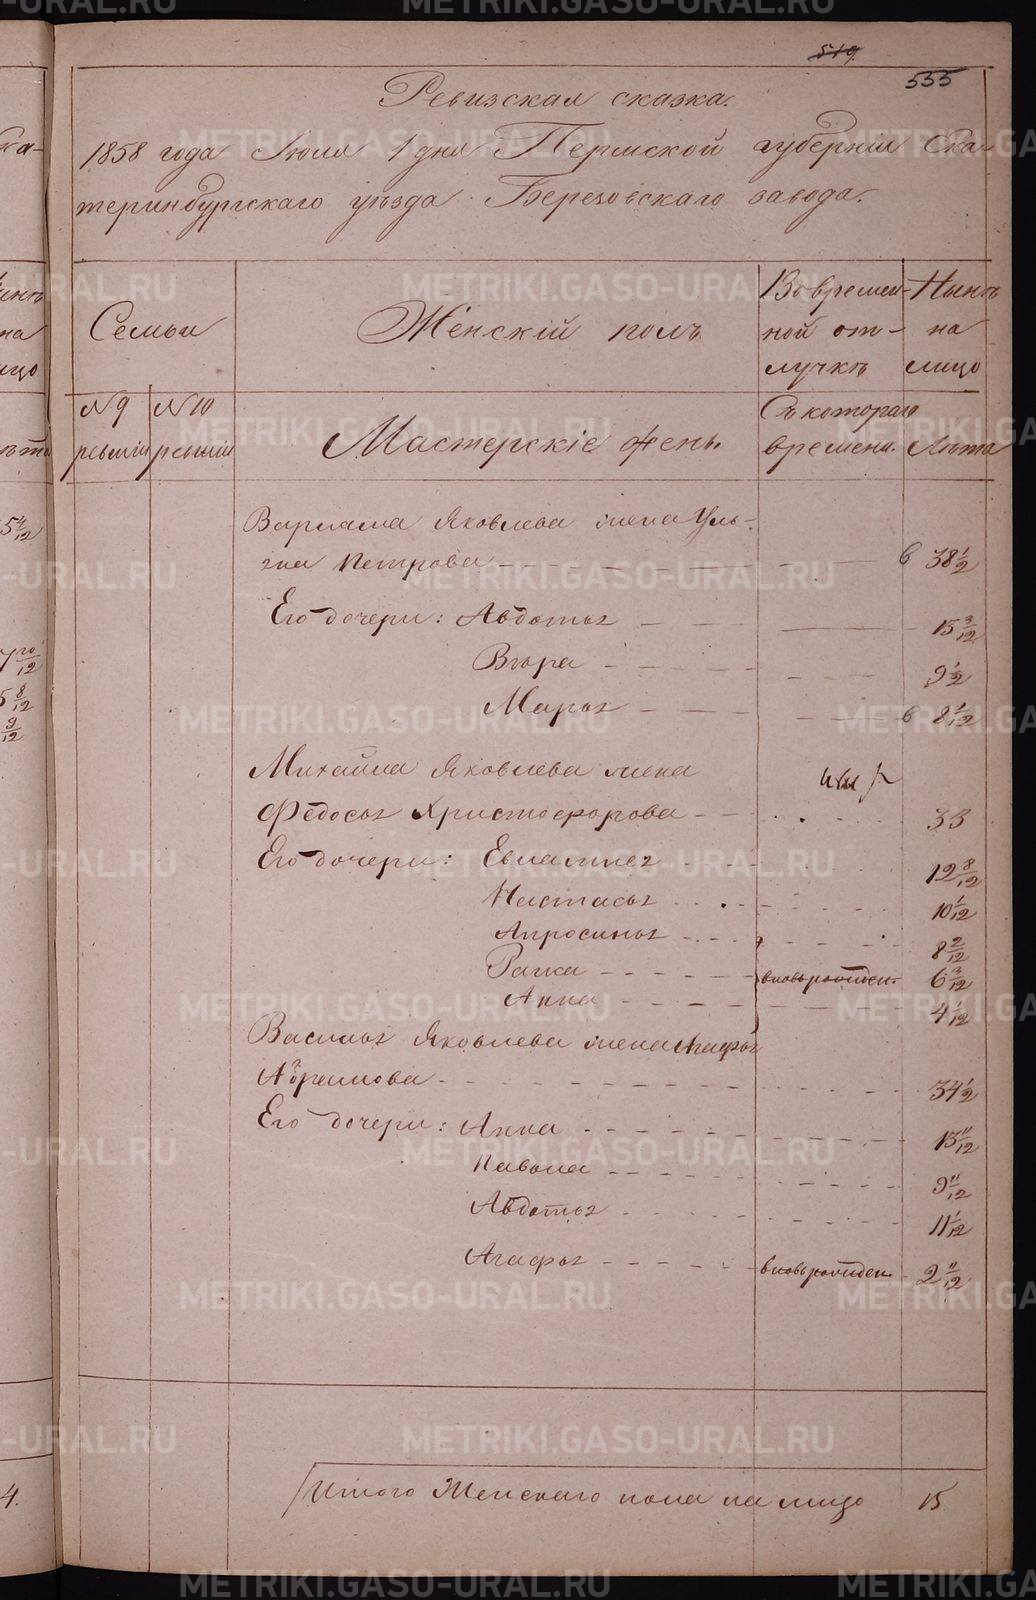 519.
555
Ревизская сказка.
1858 года Июля 1 дня Пермской губернiи Ека-
теринбургскаго уѣзда Березовскаго завода.
Семьи
Женскiй полъ
Во времен-
ной от-
лучкѣ
Нынѣ
на
лицо
№ 9
ревизiи
№ 10
ревизiи
Мастерскiе жены
Съ котораго
времени.
Лѣта
Варлама Яковлева жена Уль-
яна Петрова 6 38 1/2
Его дочери: Авдотья 15 3/12
Вѣра 9 1/2
Марья 6 8 1/12
Михайла Яковлева жена
Федосья Христофорова 33
Его дочери: Евлампея 12 8/12
Настасья 10 1/12
Апросинья 8 2/12
Раиса вновь рожден. 6 3/12
Анна 4 1/12
Василья Яковлева жена Агафья
Абрамова 34 1/2
Его дочери: Анна 13 11/12
Павола 9 11/12
Авдотья 11 1/12
Агафья вновь рожден. 2 11/12
Итого Женскаго пола на лицо 15
METRIKI.GASO-URAL.RU